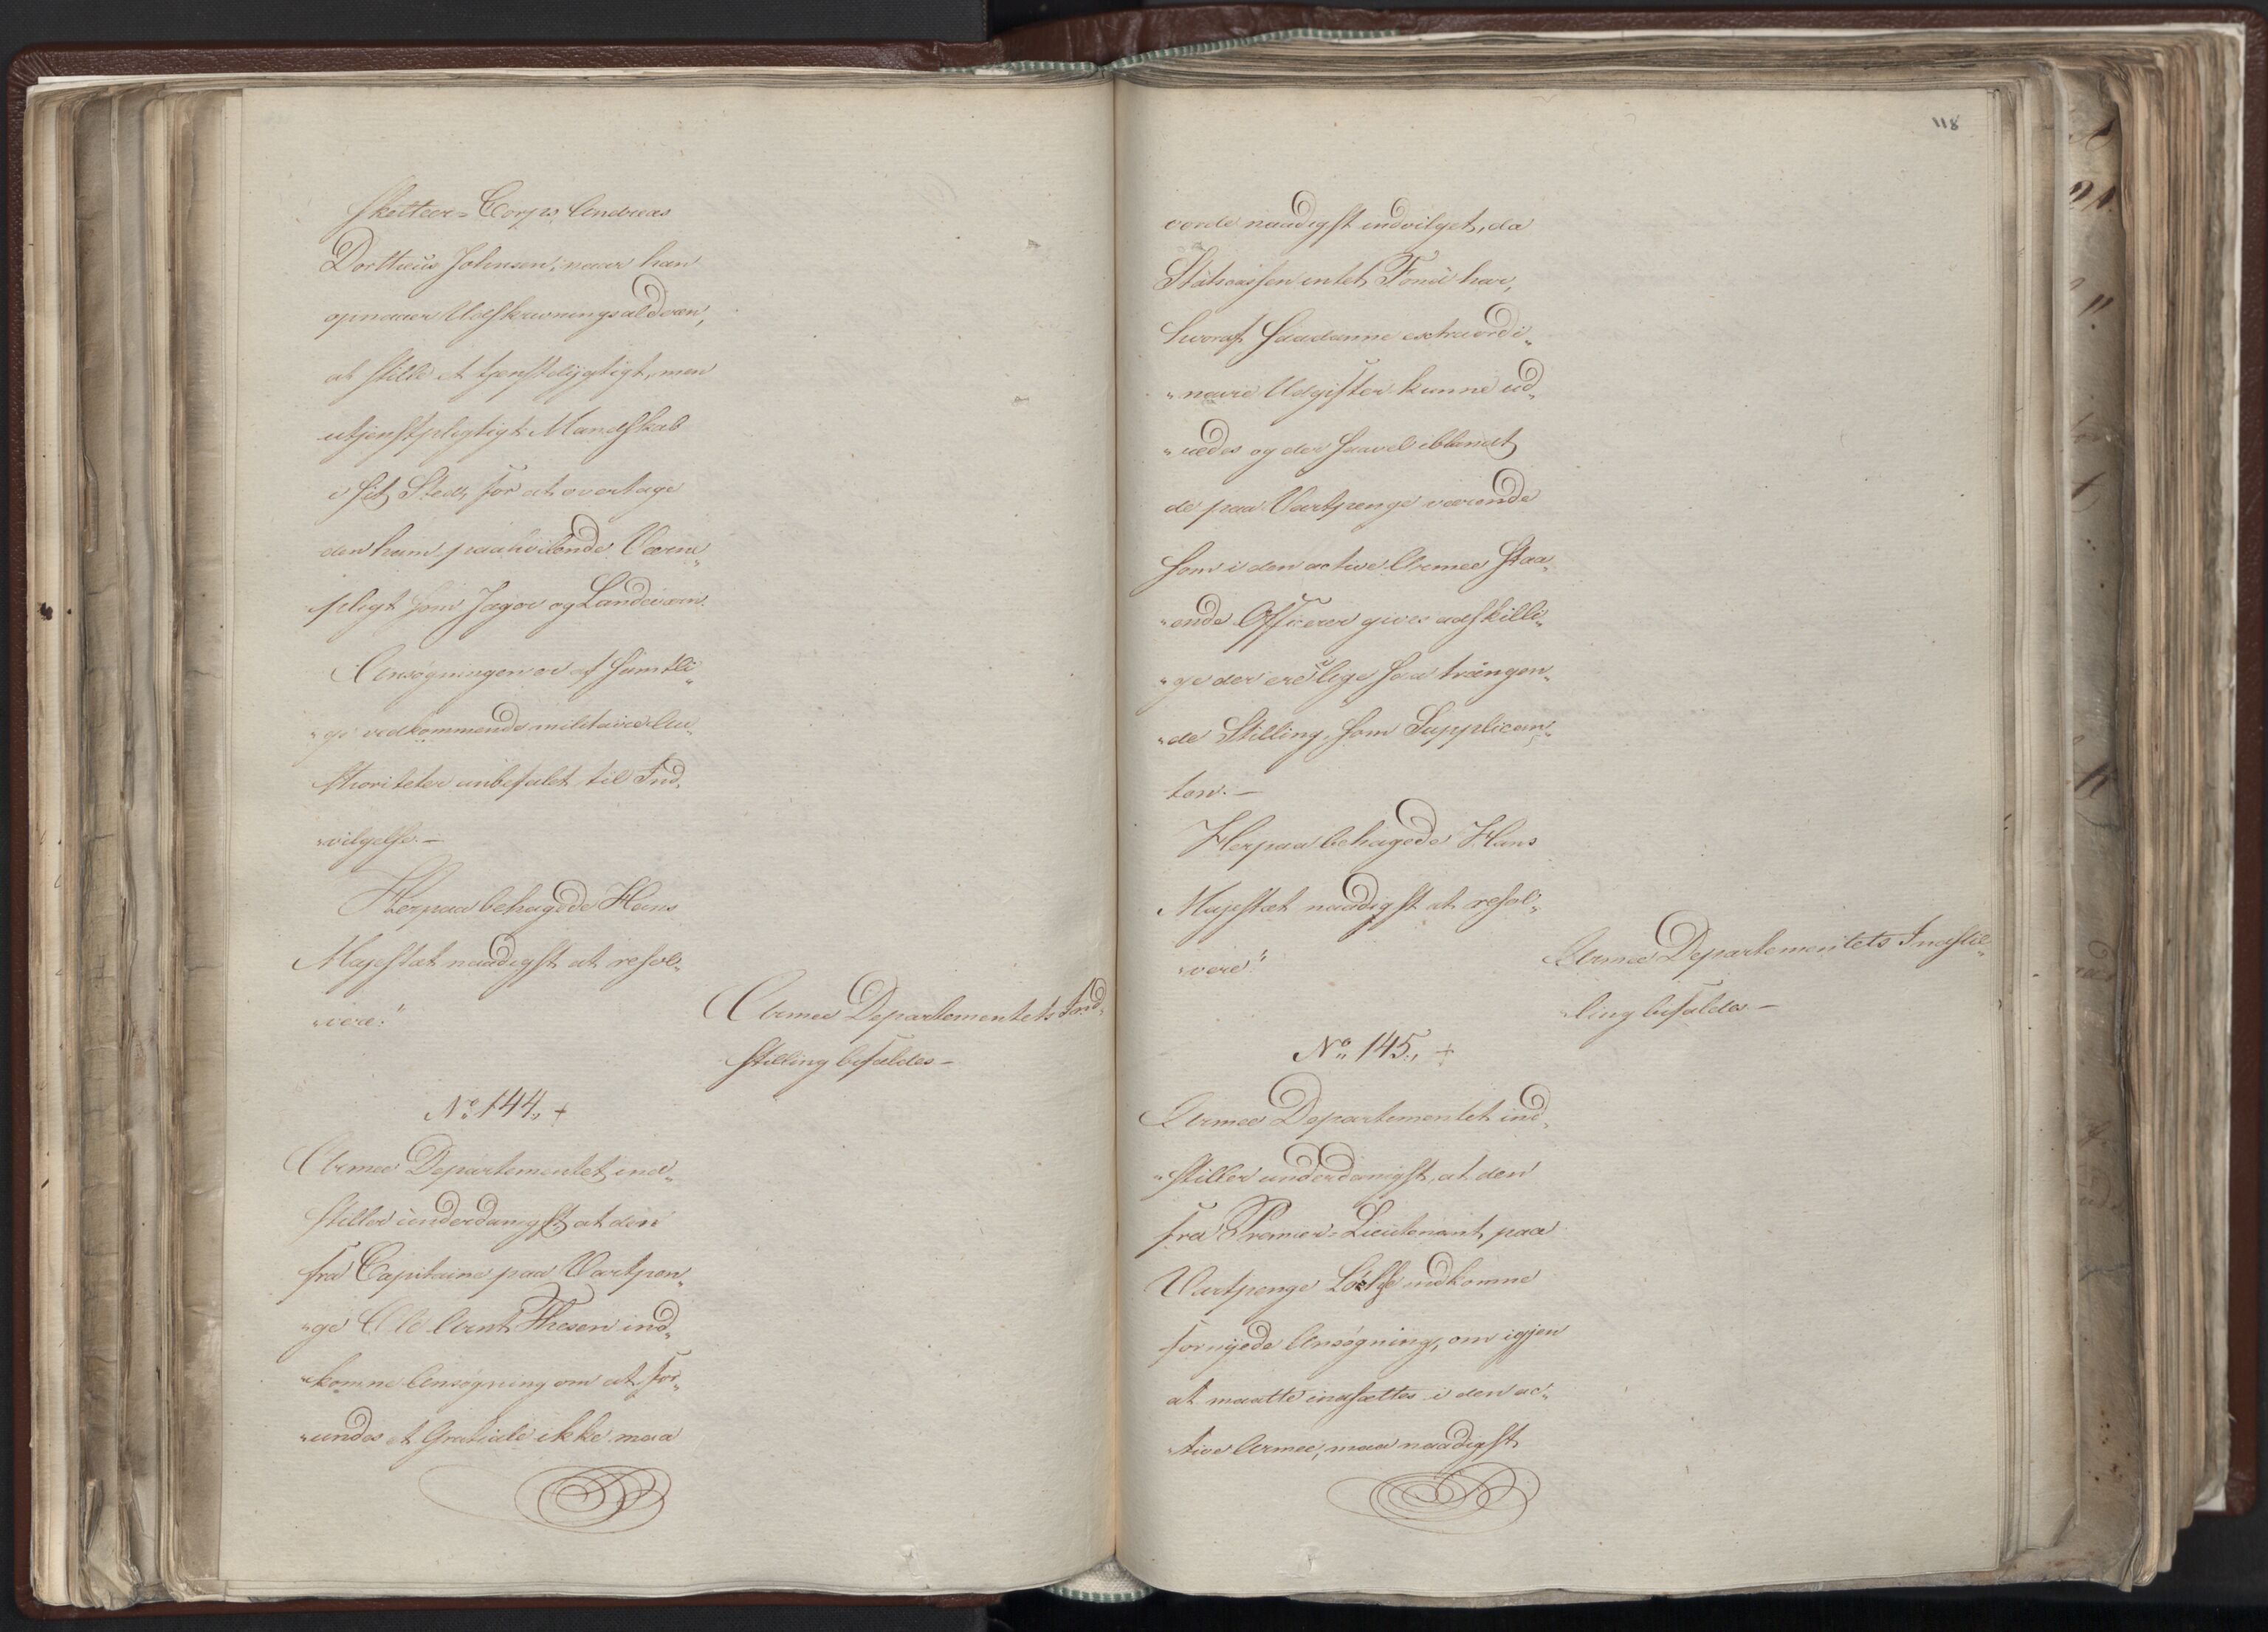 sketteer-Corps Andreas
Dorttheüs Johnsen, naar han
opnaaer Udskrivningsalderen,
at stille et tjenstdygtigt, men
utjenstpligtigt Mandskab
i sit Sted, for at overtage
den ham paahvilende Værne„
pligt som Jæger og Landeværn.
Ansøgningen er af samtli„
„ge vedkommende militaire Au„
thoriteter anbefalet til Ind„
„vilgelse. —
Herpaa behagede Hans
Majestæt naadigst at resol„
„vere:"
Armee Departementets Ind„
stilling bifaldes —
No 144, +
Armee Departementet ind„
stiller underdanigst, at den
fra Capitaine paa Vartpen„
„ge Ole Arnt Thesen ind„
„komne Ansøgning om at for„
„undes et Gratiale ikke maa
118
vorde naadigst indvilget, da
Statscassen intet Fond har,
hvoraf saadanne extraordi„
„naire Udgifter kunne ud„
„redes og der saavel iblandt
de paa Vartpenge værende
som i den active Armee staa„
„ende Officerer gives adskilli„
„ge der ere i lige saa trængen„
„de Stilling, som Supplican„
ten. —
Herpaa behagede Hans
Majestæt naadigst at resol„
„vere:"
Armee Departementets Indstil„
„ling bifaldes —
No 145, +
Armee Departementet ind„
„stiller underdanigst, at den
fra Premier-Lieutenant paa
Vartpenge indkomne
fornyede Ansøgning, om igjen
at maatte indsættes i den ac„
„tive Armee, maa naadigst